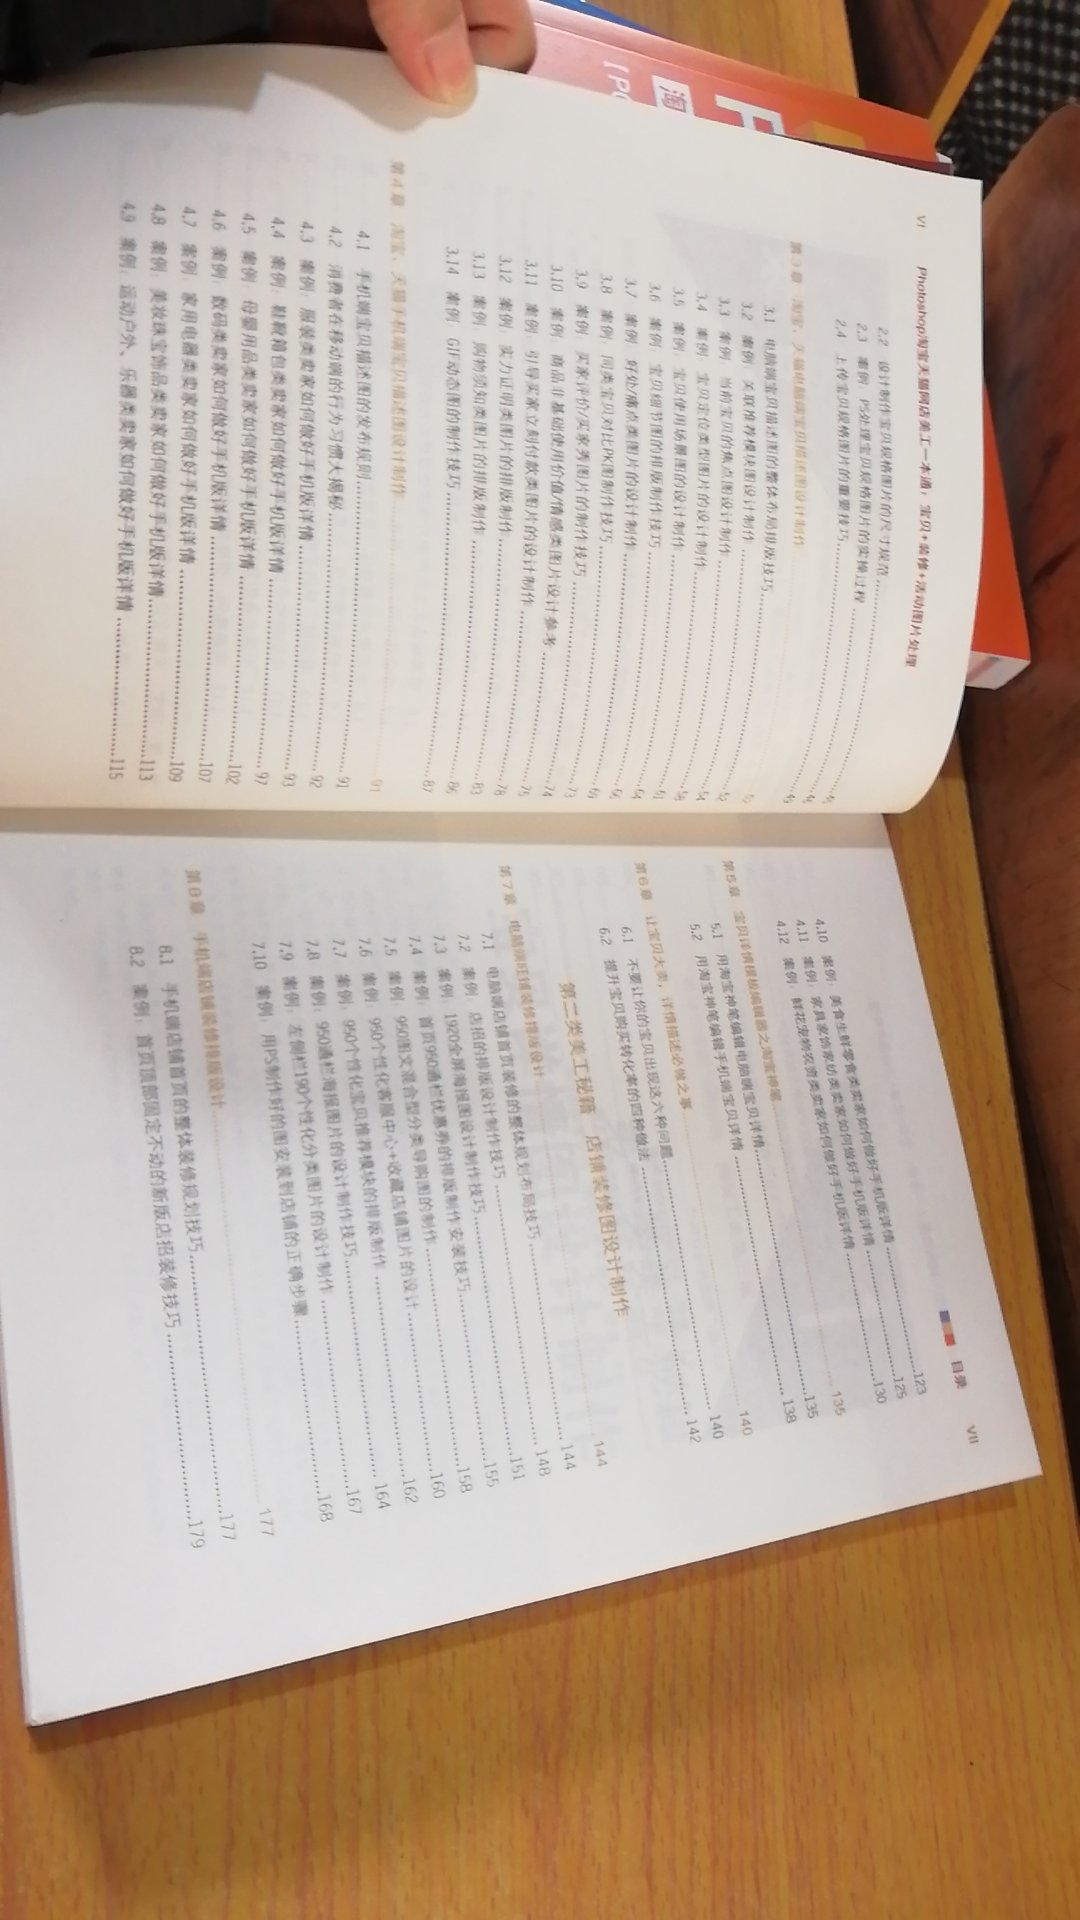 VI Photoshop淘宝天猫网店美工一本通：宝贝+装修+活动图片处理
2.2 设计制作宝贝规格图片的尺寸规范
2.3 案例：PS处理宝贝规格图片的实操过程
2.4 上传宝贝规格图片的重要技巧
第3章 淘宝、天猫电脑端宝贝描述图设计制作
3.1 电脑端宝贝描述图的整体布局排版技巧
3.2 案例：关联推荐模块图设计制作
3.3 案例：当前宝贝的焦点图设计制作
3.4 案例：宝贝定位类型图片的设计制作
3.5 案例：宝贝使用场景图的设计制作
3.6 案例：宝贝细节图的排版制作技巧
3.7 案例：好处/痛点类图片的设计制作
3.8 案例：同类宝贝对比PK图制作技巧
3.9 案例：买家评价/买家秀图片的制作技巧 73
3.10 案例：商品非基础使用价值/情感类图片设计参考 74
3.11 案例：引导买家立刻付款类图片的设计制作 75
3.12 案例：实力证明类图片的排版制作 78
3.13 案例：购物须知类图片的排版制作 83
3.14 案例：GIF动态图的制作技巧 86
87
第4章 淘宝、天猫手机端宝贝描述图设计制作 91
4.1 手机端宝贝描述图的发布规则 91
4.2 消费者在移动端的行为习惯大揭秘 92
4.3 案例：服装类卖家如何做好手机版详情 93
4.4 案例：鞋靴箱包类卖家如何做好手机版详情 97
4.5 案例：母婴用品类卖家如何做好手机版详情 102
4.6 案例：数码类卖家如何做好手机版详情 107
4.7 案例：家用电器类卖家如何做好手机版详情 109
4.8 案例：美妆珠宝饰品类卖家如何做好手机版详情 113
4.9 案例：运动户外、乐器类卖家如何做好手机版详情 115
目录 VII
4.10 案例：美食生鲜零食类卖家如何做好手机版详情 123
4.11 案例：家具家饰家纺类卖家如何做好手机版详情 125
4.12 案例：鲜花宠物农资类卖家如何做好手机版详情 130
第5章 宝贝详情模板编辑器之淘宝神笔 135
5.1 用淘宝神笔编辑电脑端宝贝详情 135
5.2 用淘宝神笔编辑手机端宝贝详情 138
第6章 让宝贝大卖，详情描述必做之事 140
6.1 不要让你的宝贝出现这六种问题 140
6.2 提升宝贝购买转化率的四种做法 142
第二类美工秘籍 店铺装修图设计制作
第7章 电脑端旺铺装修排版设计 144
7.1 电脑端店铺首页装修的整体规划布局技巧 144
7.2 案例：店招的排版设计制作技巧 148
7.3 案例：1920全屏海报图设计制作技巧 151
7.4 案例：首页950通栏优惠券的排版制作安装技巧 155
7.5 案例：950图文混合型分类导购图的制作 158
7.6 案例：950个性化客服中心+收藏店铺图片的设计 160
7.7 案例：950个性化宝贝推荐模块的排版制作 162
7.8 案例：950通栏海报图片的设计制作技巧 164
7.9 案例：左侧栏190个性化分类图片的设计制作 167
7.10 案例：用PS制作好的图安装到店铺的正确步骤 168
第8章 手机端店铺装修排版设计 177
8.1 手机端店铺首页的整体装修规划技巧 177
8.2 案例：首页顶部固定不动的新版店招装修技巧 179
淘